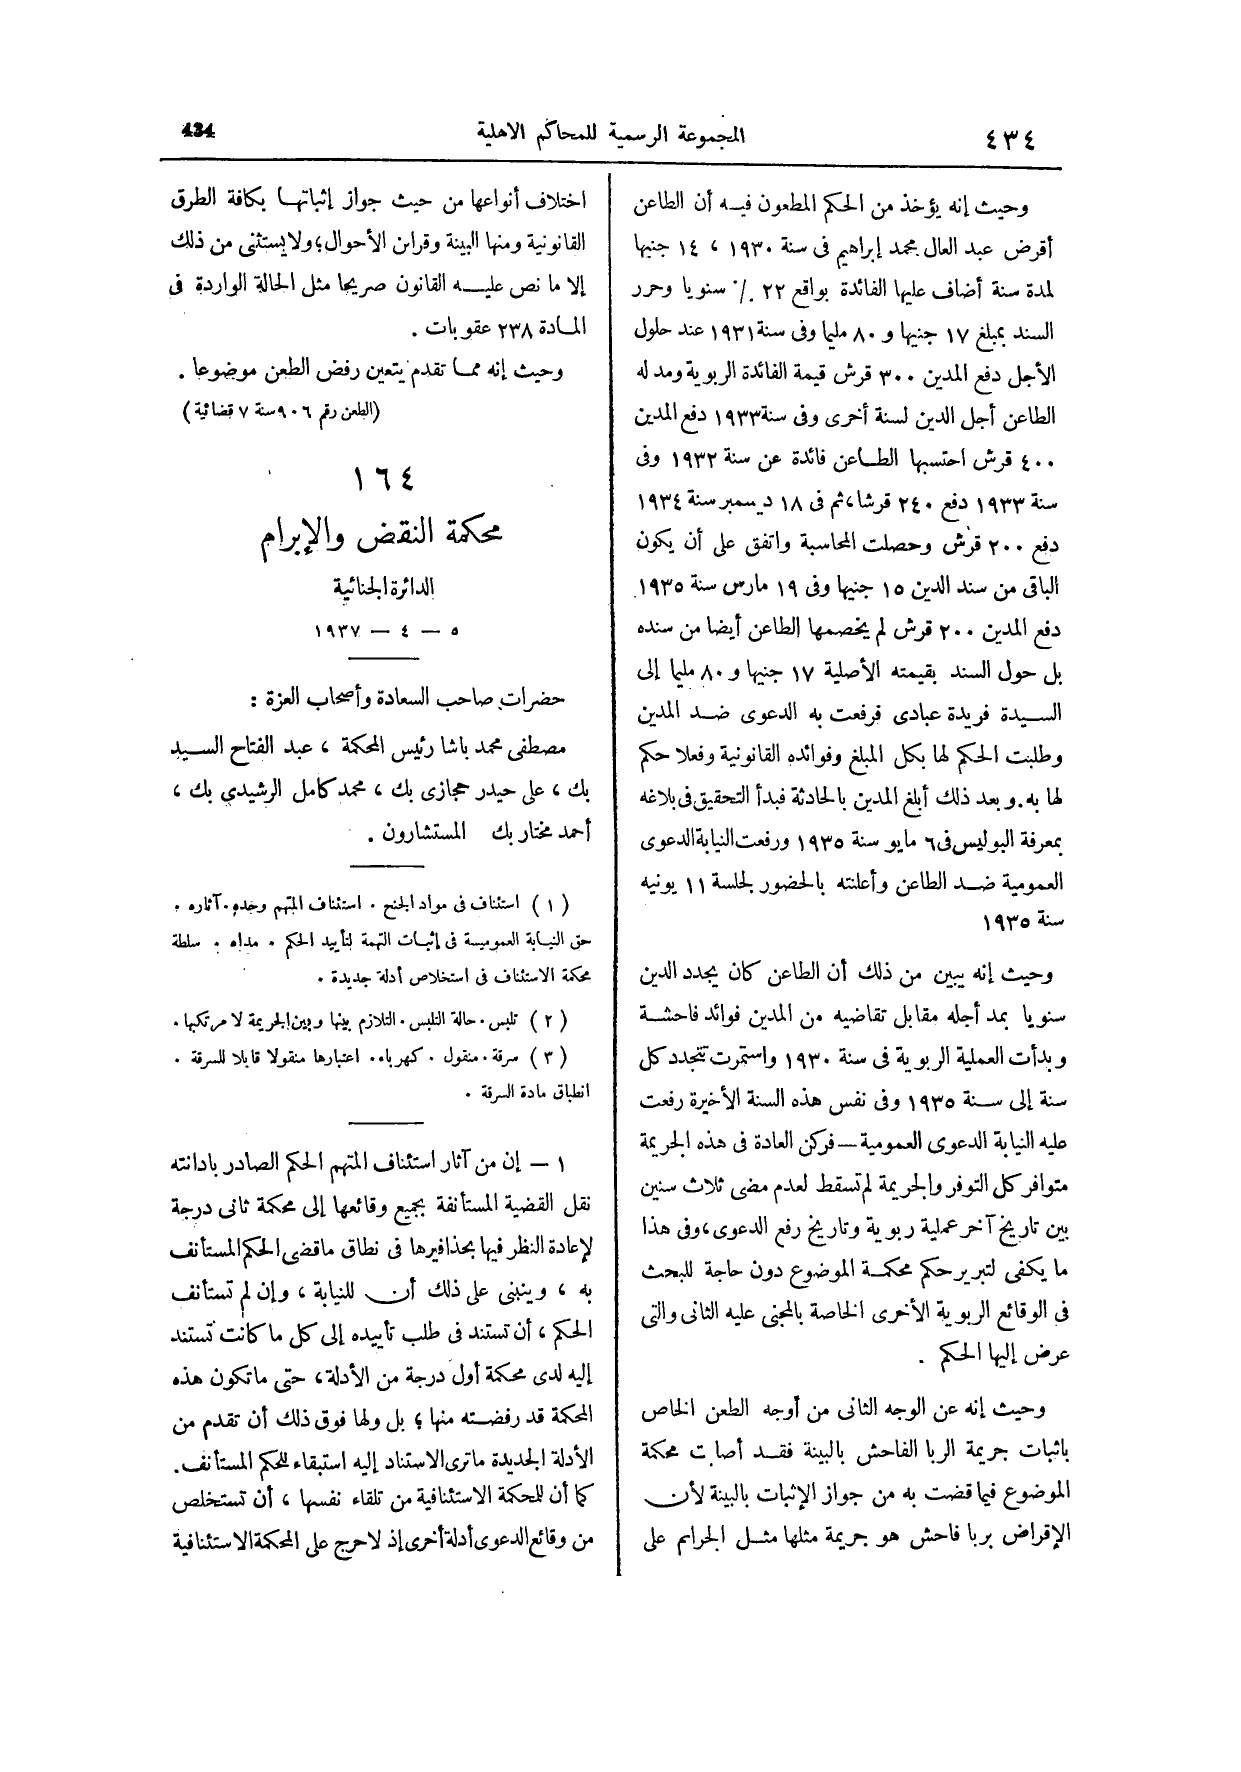 ٤٣٤
المجموعة الرسمية للمحاكم الاهلية
434
وحيث إنه يؤخذ من الحكم المطعون فيه أن الطاعن
أقرض عبد العال محمد إبراهيم فى سنة ١٩٣٠ ، ١٤ جنيها
لمدة سنة أضاف عليها الفائدة بواقع ٢٢ ٪ سنويا وحرر
السند بمبلغ ١٧ جنيها و ٨٠ مليا وفى سنة ١٩٣١ عند حلول
الأجل دفع المدين ٣٠٠ قرش قيمة الفائدة الربوية ومد له
الطاعن أجل الدين لسنة أخرى وفى سنة ١٩٣٣ دفع المدين
٤٠٠ قرش احتسبها الطاعن فائدة عن سنة ١٩٣٢ وفى
سنة ١٩٣٣ دفع ٢٤٠ قرشا، ثم فى ١٨ ديسمبر سنة ١٩٣٤
دفع ٢٠٠ قرش وحصلت المحاسبة واتفق على أن يكون
الباقى من سند الدين ١٥ جنيها وفى ١٩ مارس سنة ١٩٣٥
دفع المدين ٢٠٠ قرش لم يخصمها الطاعن أيضا من سنده
بل حول السند بقيمته الأصلية ١٧ جنيها و ٨٠ مليا إلى
السيدة فريدة عبادى فرفعت به الدعوى ضد المدين
وطلبت الحكم لها بكل المبلغ وفوائده القانونية وفعلا حكم
لها به. وبعد ذلك أبلغ المدين بالحادثة فبدأ التحقيق فى بلاغه
بمعرفة البوليس فى ٦ مايو سنة ١٩٣٥ ورفعت النيابة الدعوى
العمومية ضد الطاعن وأعلنته بالحضور لجلسة ١١ يونيه
سنة ١٩٣٥
وحيث إنه يبين من ذلك أن الطاعن كان يجدد الدين
سنويا بمد أجله مقابل تقاضيه من المدين فوائد فاحشة
وبدأت العملية الربوية فى سنة ١٩٣٠ واستمرت تتجدد كل
سنة إلى سنة ١٩٣٥ وفى نفس هذه السنة الأخيرة رفعت
عليه النيابة الدعوى العمومية — فركن العادة فى هذه الجريمة
متوافر كل التوفر والجريمة لم تسقط لعدم مضى ثلاث سنين
بين تاريخ آخر عملية ربوية وتاريخ رفع الدعوى، وفى هذا
ما يكفى لتبرير حكم محكمة الموضوع دون حاجة للبحث
فى الوقائع الربوية الأخرى الخاصة بالمجنى عليه الثانى والتى
عرض إليها الحكم .
وحيث إنه عن الوجه الثانى من أوجه الطعن الخاص
باثبات جريمة الربا الفاحش بالبينة فقد أصابت محكمة
الموضوع فيما قضت به من جواز الإثبات بالبينة لأن
الإقراض بربا فاحش هو جريمة مثلها مثل الجرائم على
اختلاف أنواعها من حيث جواز إثباتها بكافة الطرق
القانونية ومنها البينة وقرائن الأحوال؛ ولا يستثنى من ذلك
إلا ما نص عليه القانون صريحا مثل الحالة الواردة فى
المادة ٢٣٨ عقوبات .
وحيث إنه مما تقدم يتعين رفض الطعن موضوعا .
(الطعن رقم ٩٠٦ سنة ٧ قضائية)
١٦٤
محكمة النقض والإبرام
الدائرة الجنائية
٥ — ٤ — ١٩٣٧
حضرات صاحب السعادة وأصحاب العزة :
مصطفى محمد باشا رئيس المحكمة ، عبد الفتاح السيد
بك ، على حيدر حجازى بك ، محمد كامل الرشيدي بك ،
أحمد مختار بك المستشارون .
(١) استئناف فى مواد الجنح . استئناف المتهم وحده. آثاره .
حق النيابة العمومية فى إثبات التهمة لتأييد الحكم . مداه . سلطة
محكمة الاستئناف فى استخلاص أدلة جديدة .
(٢) تلبس. حالة التلبس. التلازم بينها وبين الجريمة لا مرتكبها.
(٣) سرقة. منقول . كهرباء. اعتبارها منقولا قابلا للسرقة .
انطباق مادة السرقة .
١ — إن من آثار استئناف المتهم الحكم الصادر بادانته
نقل القضية المستأنفة بجميع وقائعها إلى محكمة ثانى درجة
لإعادة النظر فيها بحذافيرها فى نطاق ما قضى الحكم المستأنف
به ، وينبنى على ذلك أن للنيابة ، وإن لم تستأنف
الحكم ، أن تستند فى طلب تأييده إلى كل ما كانت تستند
إليه لدى محكمة أول درجة من الأدلة، حتى ما تكون هذه
المحكمة قد رفضته منها ؛ بل ولها فوق ذلك أن تقدم من
الأدلة الجديدة ما ترى الاستناد إليه استبقاء للحكم المستأنف.
كما أن للمحكمة الاستئنافية من تلقاء نفسها ، أن تستخلص
من وقائع الدعوى أدلة أخرى إذ لا حرج على المحكمة الاستئنافية